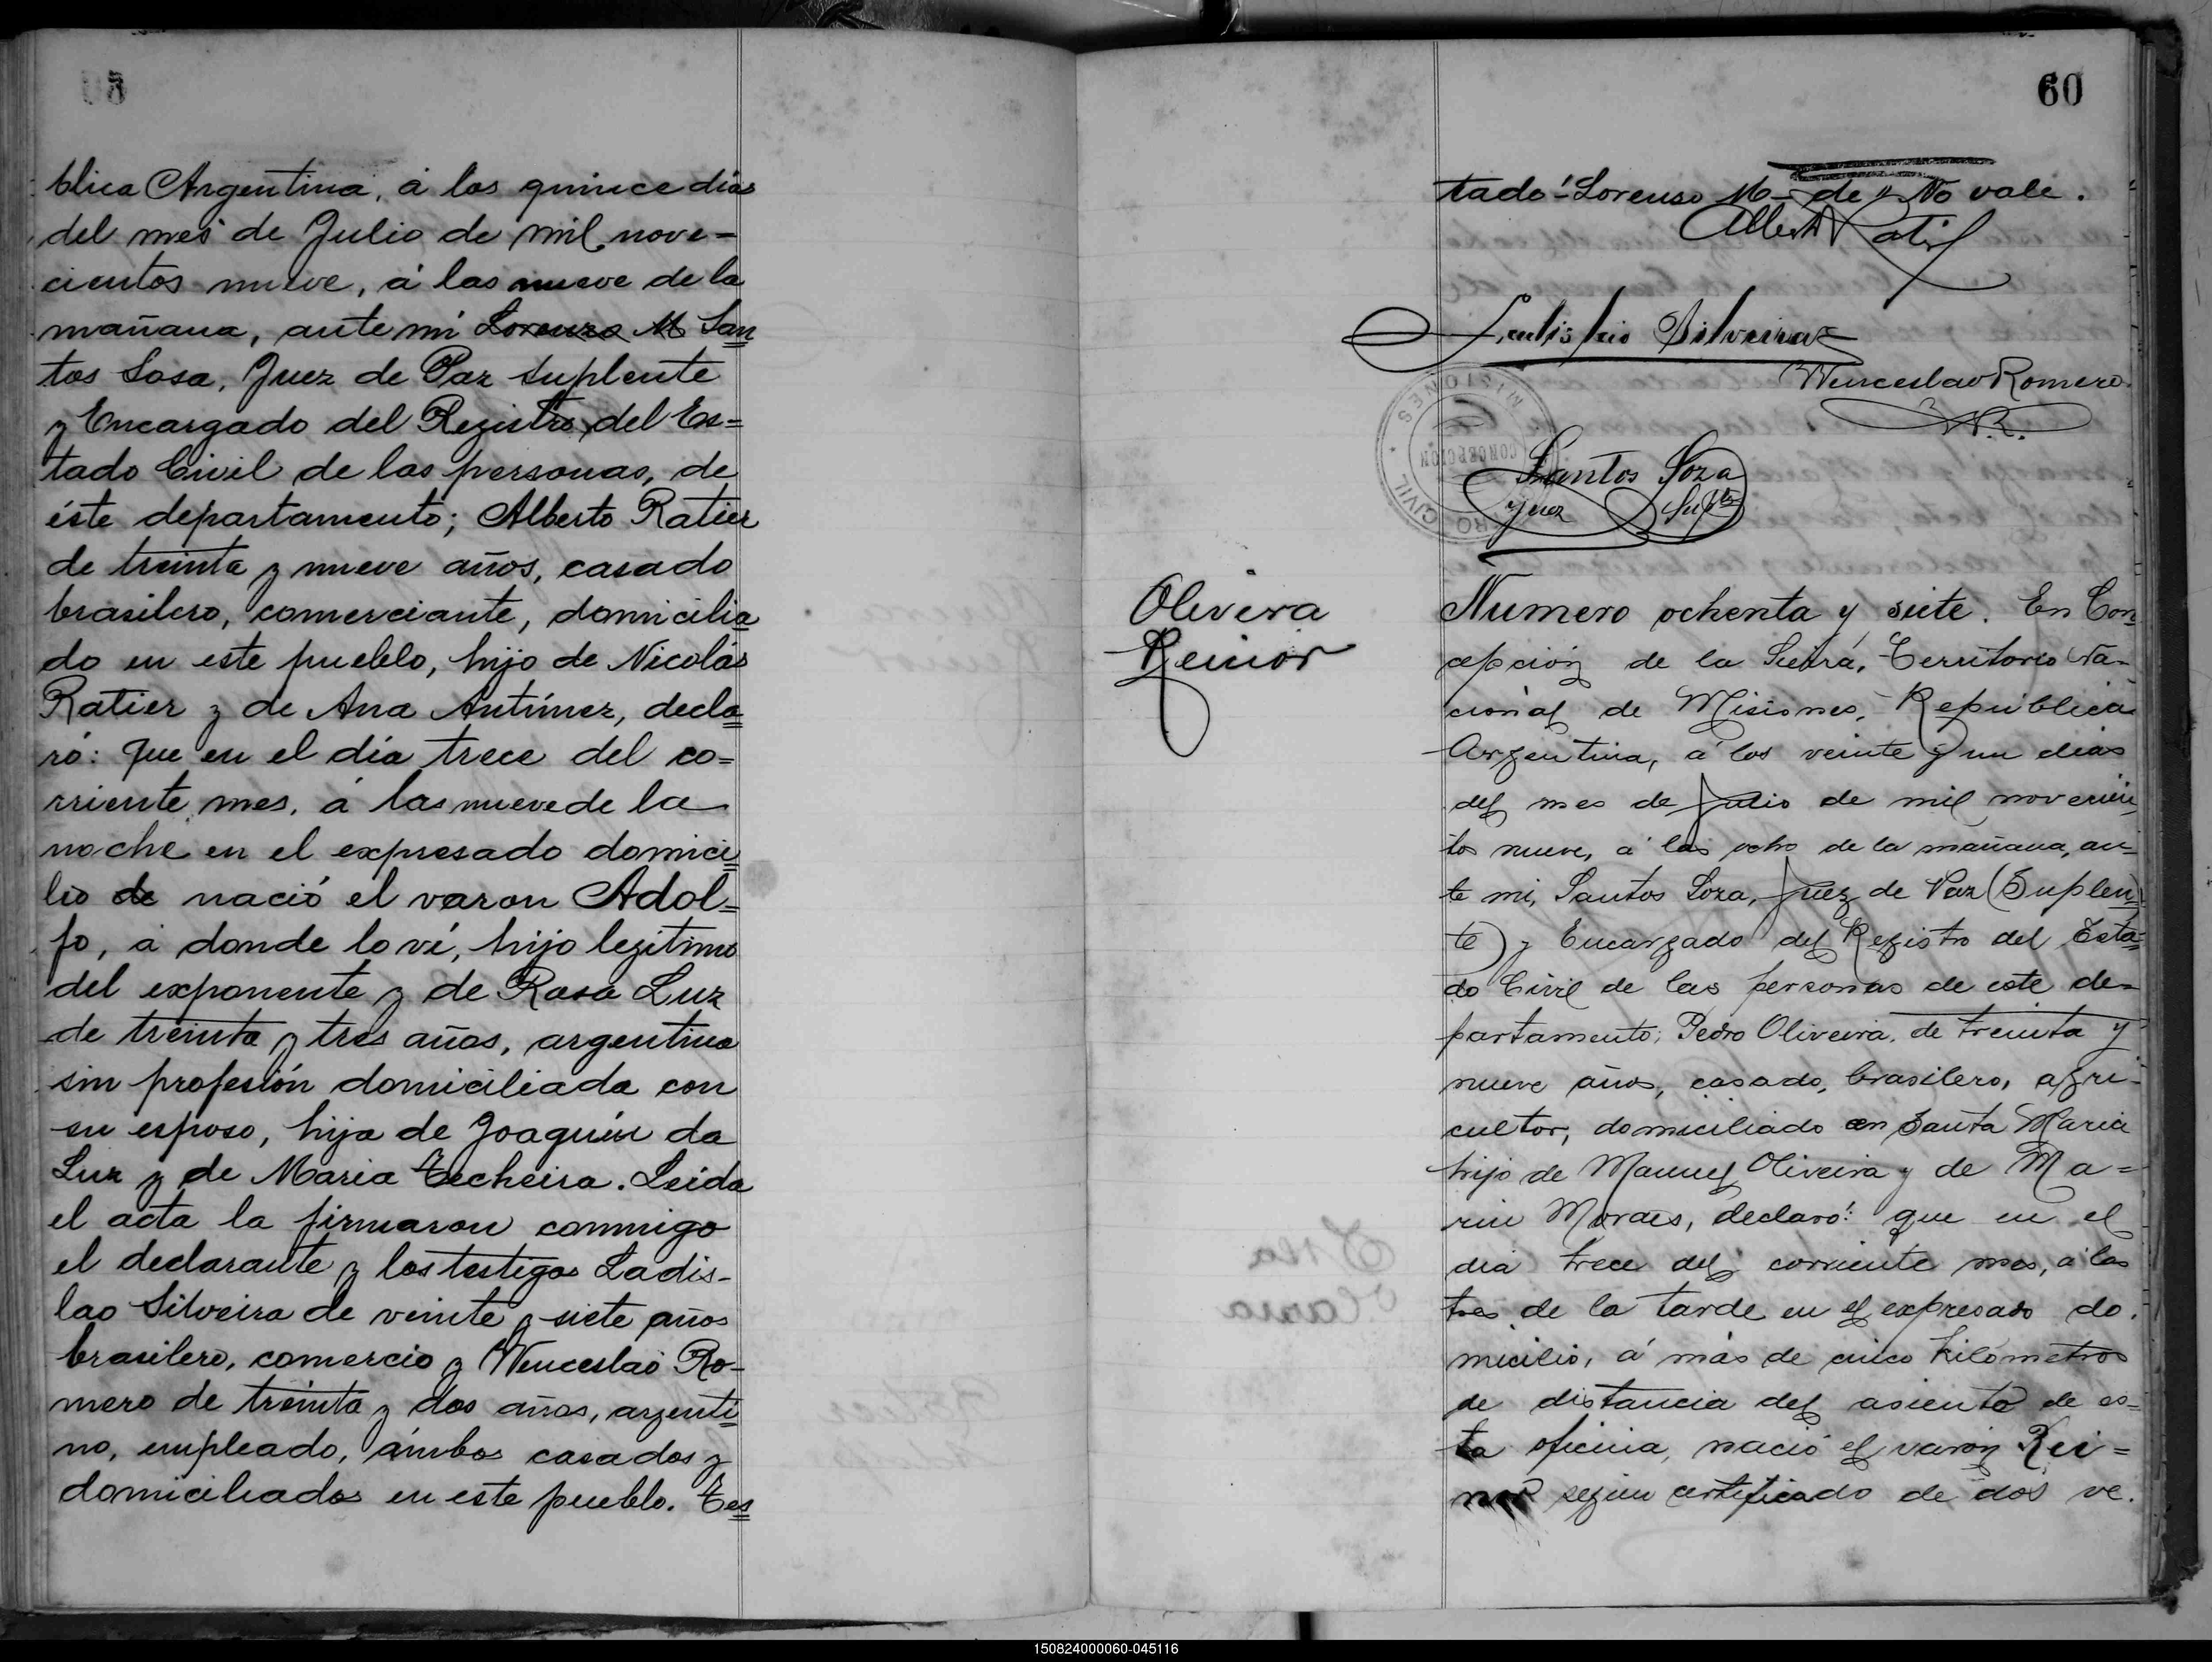 blica Argentina, á los quince dias
del mes de Julio de mil nove=
cientos nueve, á las nueve de la
mañana, ante mi Lorenzo M San
tos Sosa, Juez de Paz Suplente
y Encargado del Registro del Es=
tado Civil de las personas, de
éste departamento; Alberto Ratier
de treinta y nueve años, casado
brasilero, comerciante, domicilia
do en este pueblo, hijo de Nicolás
Ratier y de Ana Antúnez, decla
ró: Que en el día trece del co=
rriente mes, á las nueve de la
noche en el expresado domici
lio de nació el varon Adol=
fo, á donde lo ví, hijo legítimo
del exponente y de Rosa Luz
de treinta y tres años, argentina
sin profesión domiciliada con
su esposo, hija de Joaquín da
Luz y de Maria Techeira. Leida
el acta la firmaron conmigo
el declarante y los testigos Ladis-
lao Silveira de veinte y siete años
brasilero, comercio y Wenceslao Ro-
mero de treinta y dos años, argenti
no, empleado, ámbos casados y
domiciliados en este pueblo. Tes
60
tado: Lorenso M- de No vale.
Silveira
Wenceslao Romero
W.R.
MISIONES
CONCEPCION
CIVIL
Santos Soza
Juez Supte
Olivera
Reinor
Numero ochenta y siete. En Con
cepción de la Sierra, Territorio Na-
cional de Misiones, República
Argentina, á los veinte y un dias
del mes de Julio de mil novecien
tos nueve, á las ocho de la mañana, an-
te mi, Santos Soza, Juez de Paz (Suplen
te) y Encargado del Registro del Esta=
do Civil de las personas de este de-
partamento; Pedro Oliveira, de treinta y
nueve años, casado, brasilero, agri-
cultor, domiciliado en Santa Maria
hijo de Manuel Oliveira y de Ma=
ria Moraes, declaró: que en el
dia trece del corriente mes, á las
tres de la tarde en el expresado do.
micilio, á más de cinco kilómetros
de distancia del asiento de es-
ta oficina, nació el varón Rei=
nor según certificado de dos ve.
150824000060-045116